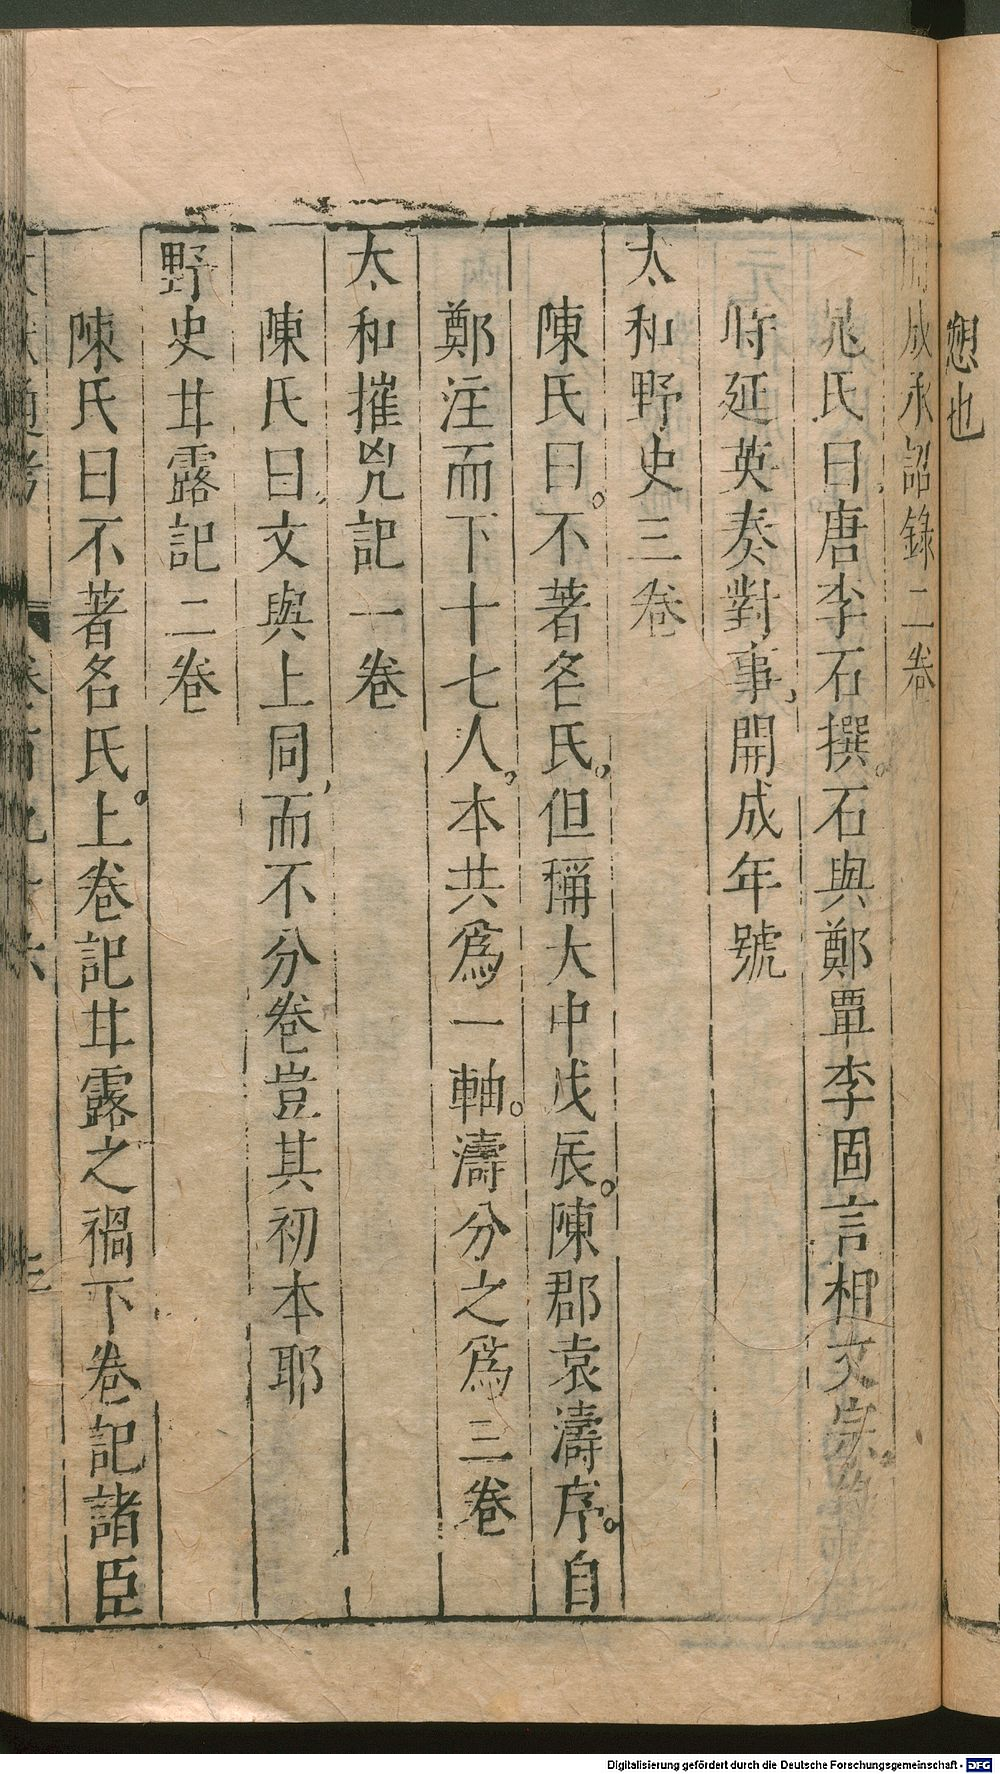 愬也
開成承詔錄二卷
晁氏曰唐李石撰。石與鄭覃李固言相文宗錄當
時延英奏對事,開成年號
太和野史三卷
陳氏曰。不著名氏。但稱大中戊辰。陳郡袁濤序。自
鄭注而下十七人。本共爲一軸。濤分之爲三卷
太和摧兇記一卷
陳氏曰,文與上同,而不分卷豈其初本耶
野史甘露記二卷
陳氏曰不著名氏。上卷記甘露之禍下卷記諸臣
文獻通考 卷百九十六 三
Digitalisierung gefördert durch die Deutsche Forschungsgemeinschaft - DFG